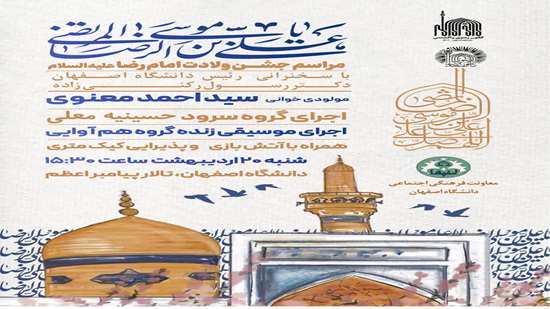 یا علی بن موسی الرضا المرتضی
مراسم جشن ولادت امام رضا علیه‌السلام
با سخنرانی رئیس دانشگاه اصفهان
دکتر رسول رکنی زاده
مولودی خوانی سید احمد معنوی
اجرای گروه سرود حسینیه معلی
اجرای موسیقی زنده گروه هم آوایی
همراه با آتش بازی و پذیرایی کیک متری
شنبه ۲۰ اردیبهشت ساعت ۱۵:۳۰
دانشگاه اصفهان، تالار پیامبر اعظم
معاونت فرهنگی اجتماعی
دانشگاه اصفهان